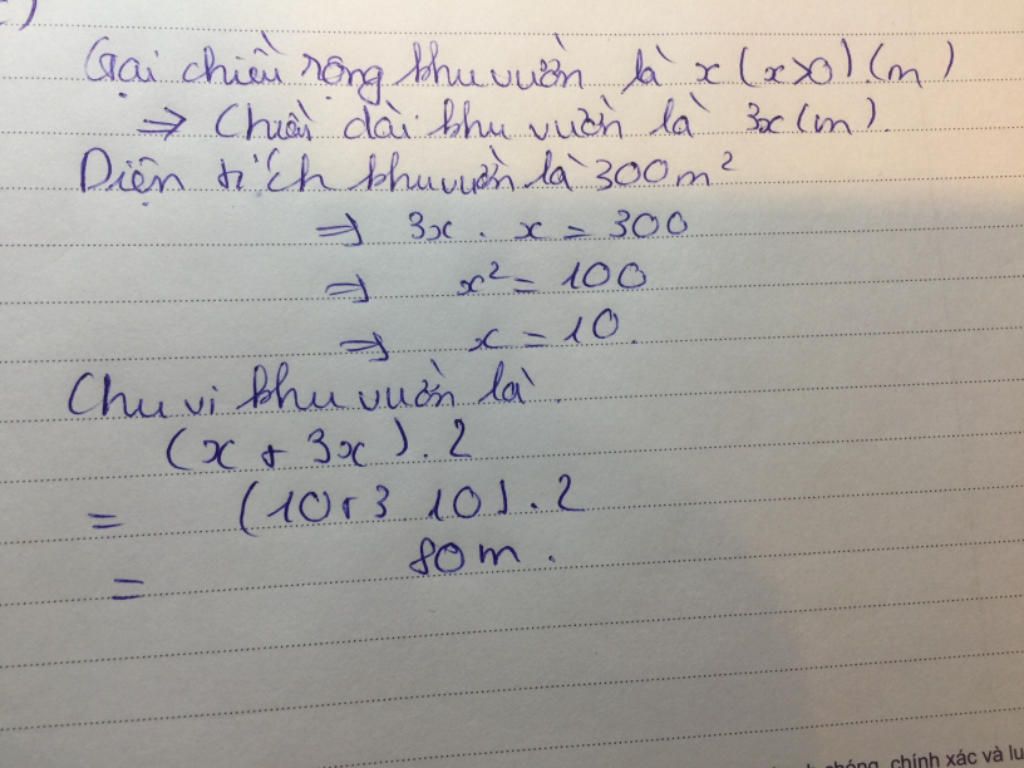 Gọi chiều rộng khu vườn là x (x>0) (m)
⇒ Chiều dài khu vườn là 3x (m).
Diện tích khu vườn là 300m²
⇒ 3x . x = 300
⇒ x² = 100
⇒ x = 10.
Chu vi khu vườn là.
(x + 3x) . 2
= (10+3 10) . 2
= 80m .
chóng, chính xác và lu